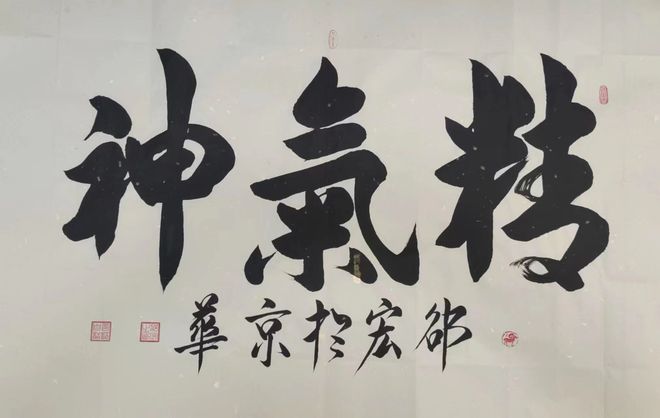 精氣神
邵宏於京華